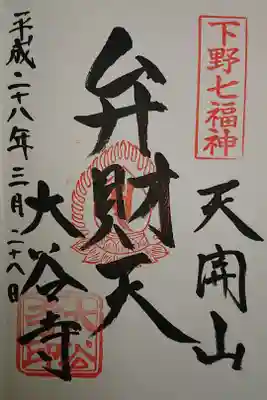 下野七福神
天開山
弁財天
大谷寺
平成二十八年三月二十八日